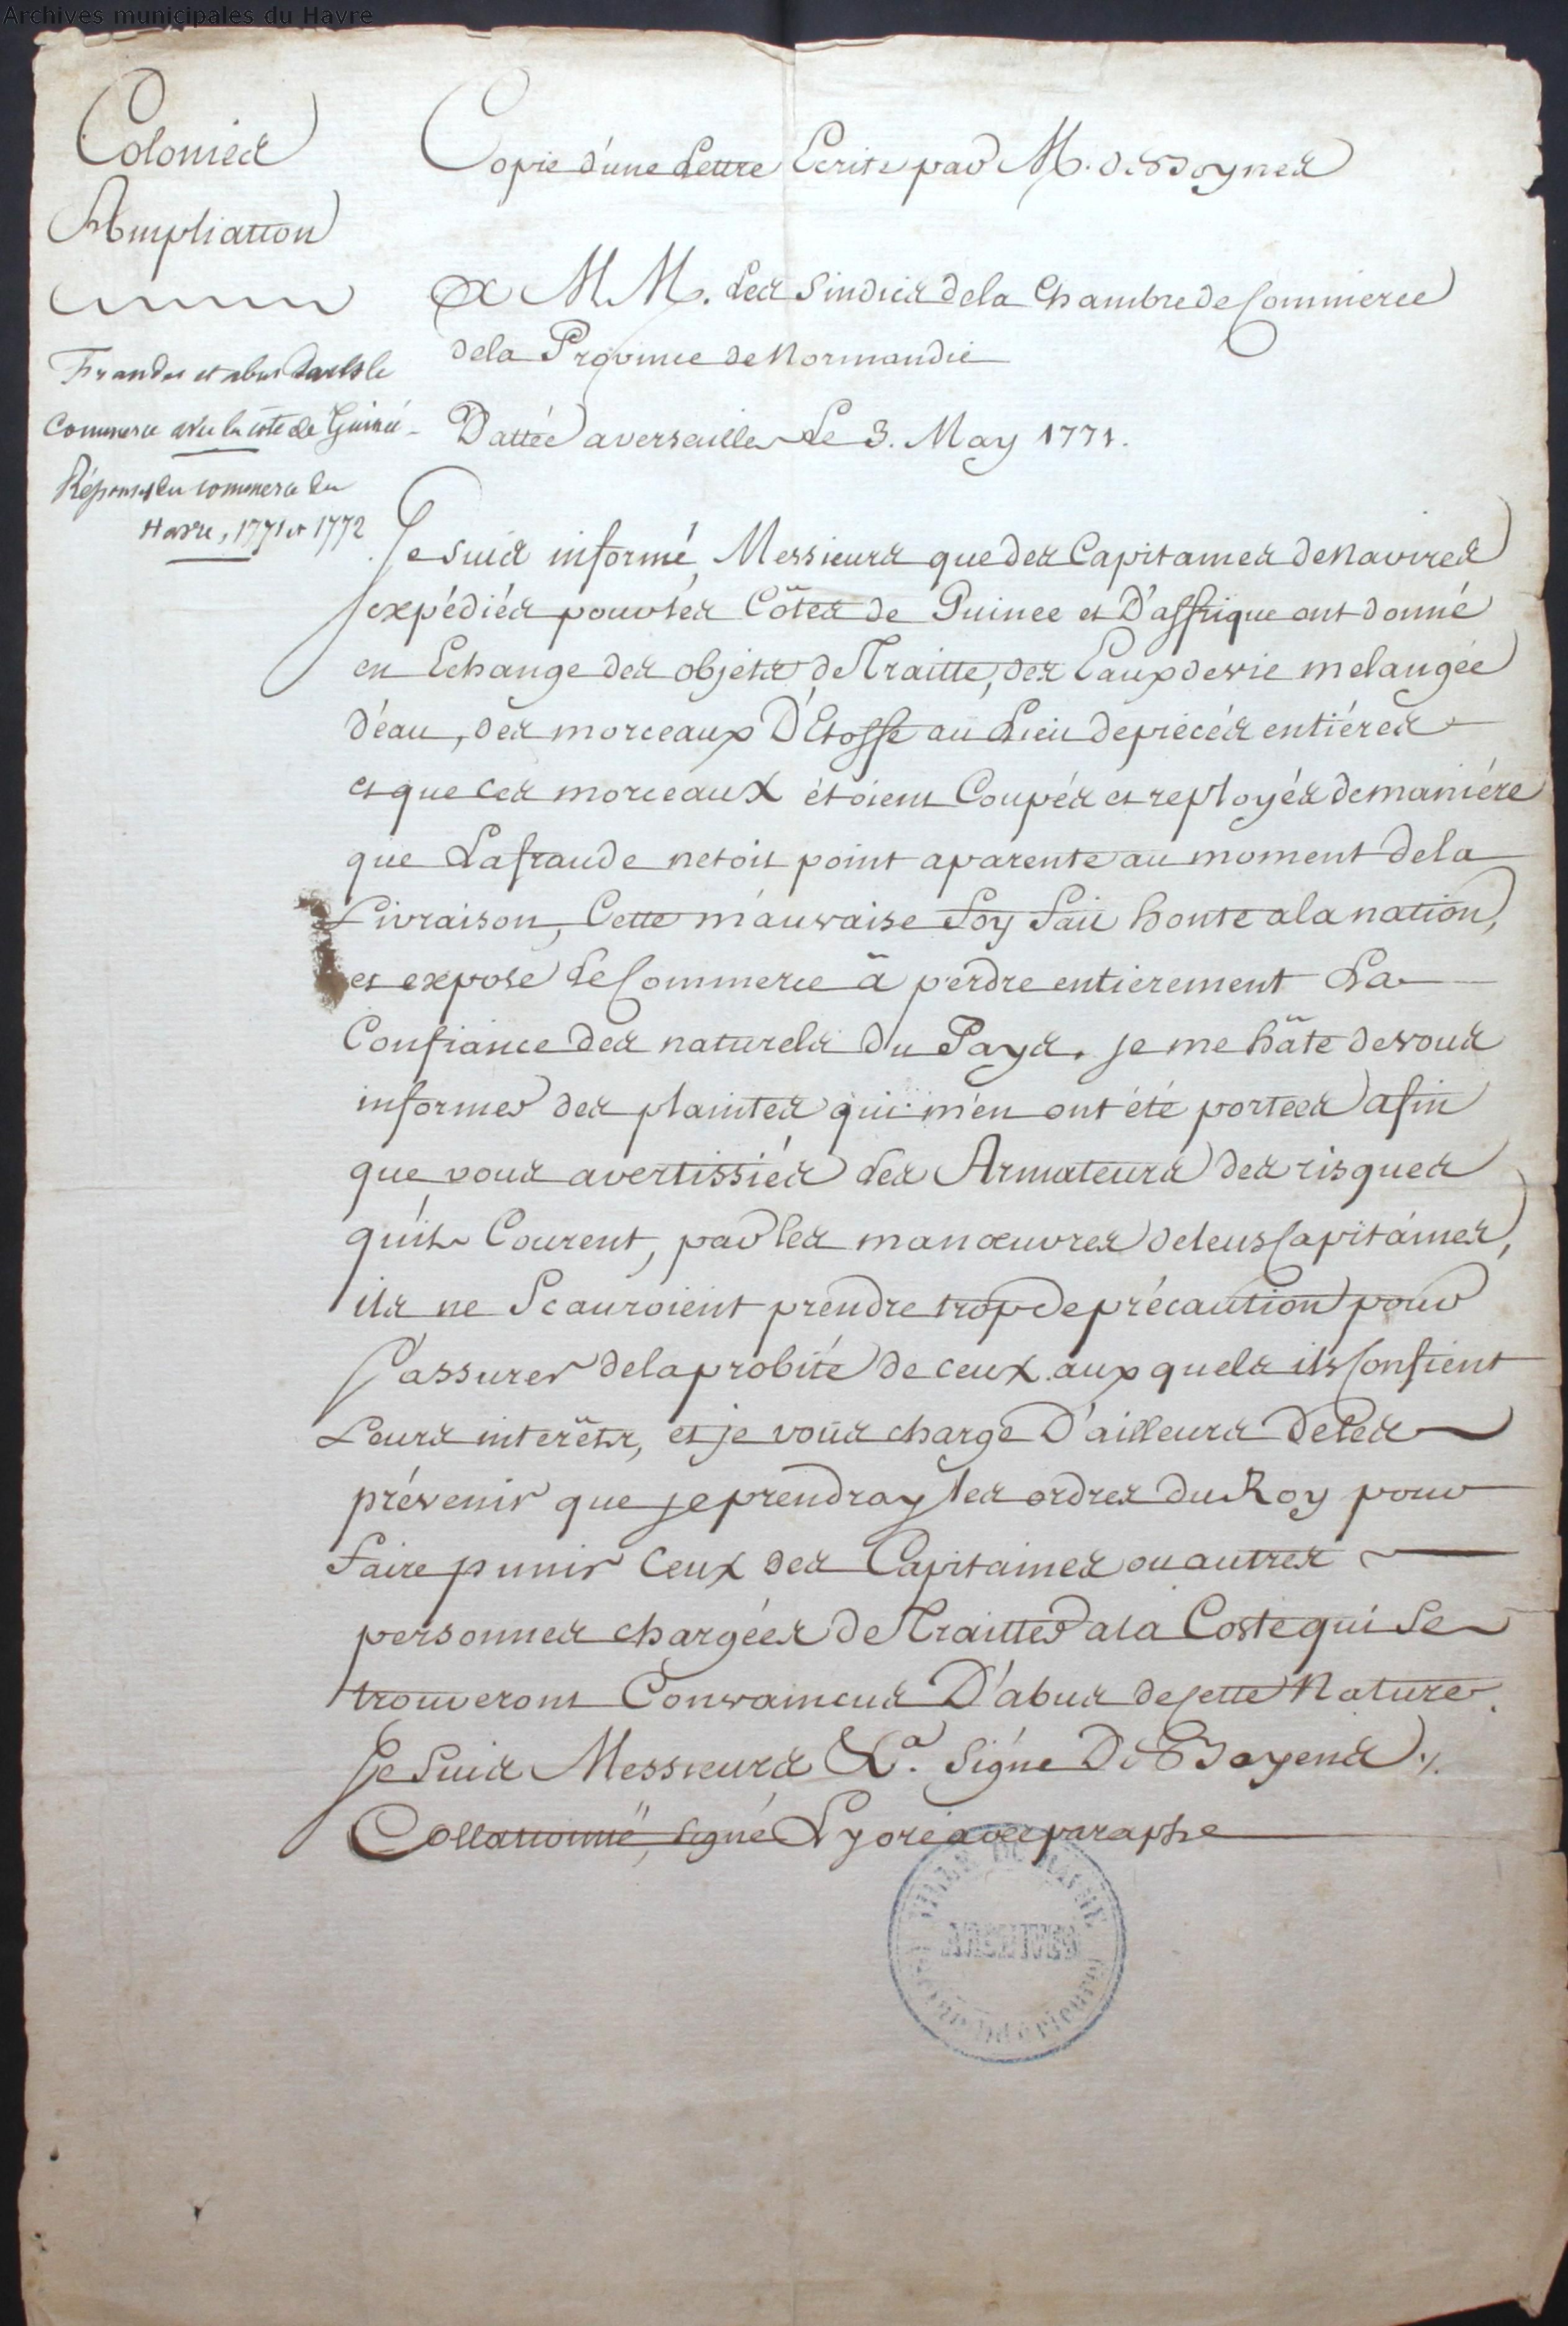 Archives municipales du Havre
Colonies
Ampliation
Fraudes et abus dans le
Commerce avec la côte de Guinée
Réponses du commerce du
Havre, 1771 et 1772
Copie d'une Lettre Ecrite par M. de Boynes
a MM. Les Sindics de la Chambre de Commerce
de la Province de Normandie
Dattée a versailles Le 3. May 1771.
Je suis informé, Messieurs que des Capitaines de Navires
expédiés pour les Côtes de Guinee et D'affrique ont donné
en Echange des objets de Traitte, des Eaux de vie melangée
d'eau, des morceaux D'Etoffe au Lieu de piécés entiéres
et que ces morceaux étoient Coupés et reployés de maniére
que La fraude netoit point aparente au moment de la
Livraison, Cette mauvaise foy fait honte a la nation,
et expose Le Commerce à perdre entierement La
Confiance des naturels du Pays. je me hâte de vous
informer des plaintes qui m'en ont été portées afin
que vous avertissiés Les Armateurs des risques
qu'ils Courent, par les manœuvres de leurs Capitaines,
ils ne Scauroient prendre trop de précaution pour
S'assurer de la probité de ceux aux quels ils Confient
Leurs interêts, et je vous charge D'ailleurs de les
prévenir que je prendray les ordres du Roy pour
faire punir Ceux des Capitaines ou autres
personnes chargées de Traitter a la Coste qui Se
trouveront Convaincus D'abus de cette Nature.
Je Suis Messieurs &a. Signé De Boyens ./.
Collationné, signé Lyoré avec paraphe
VILLE DU HAVRE
ARCHIVES
Seine Inférieure